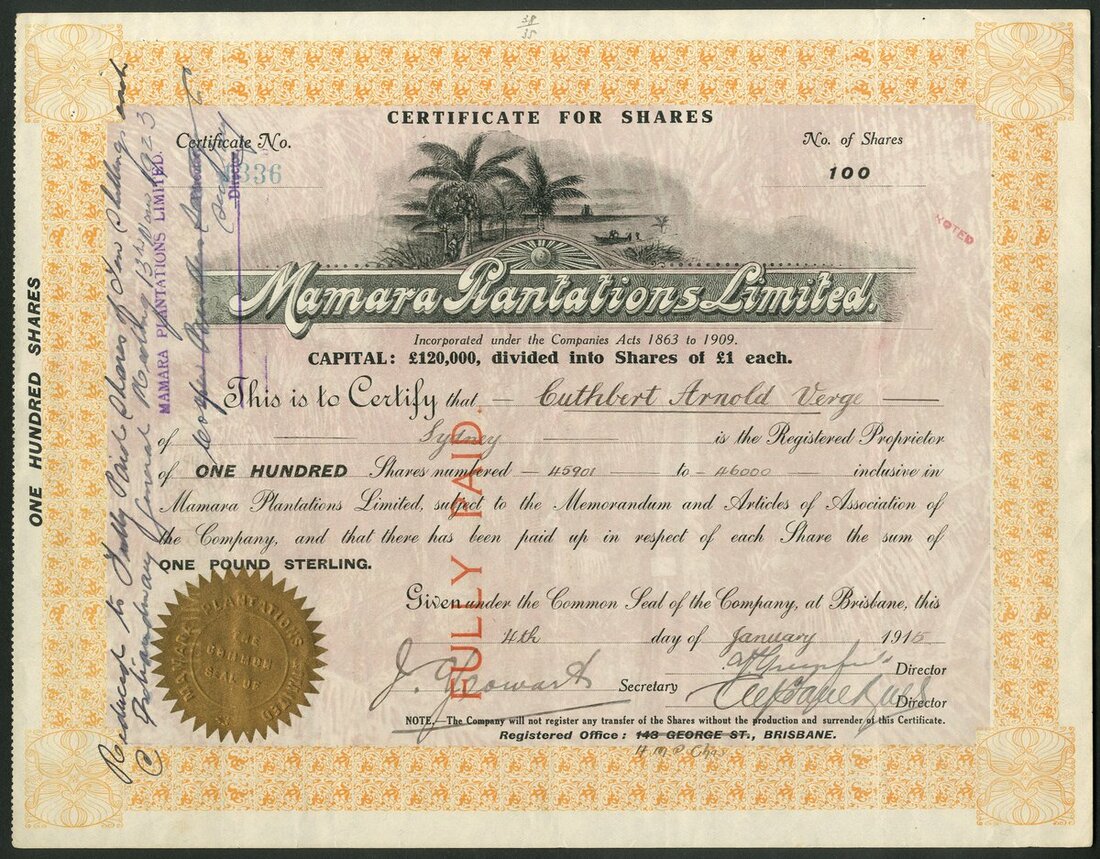 38
35
CERTIFICATE FOR SHARES
Certificate No.
336
No. of Shares
100
VOTED
Mamara Plantations Limited.
Incorporated under the Companies Acts 1863 to 1909.
CAPITAL: £120,000, divided into Shares of £1 each.
This is to Certify that — Cuthbert Arnold Verge —
of — Sydney — is the Registered Proprietor
of ONE HUNDRED Shares numbered — 45901 — to — 46000 — inclusive in
Mamara Plantations Limited, subject to the Memorandum and Articles of Association of
the Company, and that there has been paid up in respect of each Share the sum of
ONE POUND STERLING.
Given under the Common Seal of the Company, at Brisbane, this
4th day of January 1915
Director
J. Howard Secretary
Director
NOTE.—The Company will not register any transfer of the Shares without the production and surrender of this Certificate.
Registered Office : 143 GEORGE ST., BRISBANE.
FULLY PAID.
ONE HUNDRED SHARES
Reduced to Fully Paid Shares of Ten Shillings each
Extraordinary General Meeting 13th 1923
MAMARA PLANTATIONS LIMITED.
Director
Secretary
PLANTATIONS LIMITED
THE
COMMON
SEAL OF